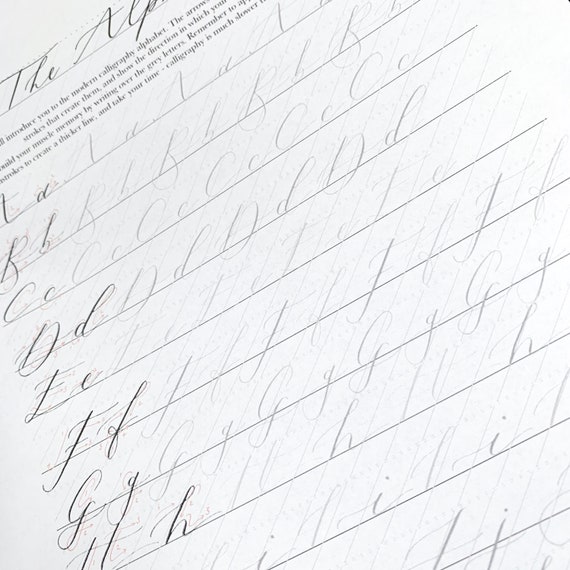 The Alph
ll introduce you to the modern calligraphy alphabet. The arrows
strokes that create them, and show the direction in which you
build your muscle memory by writing over the grey letters. Remember to ap
strokes to create a thicker line, and take your time - calligraphy is much slower t
A a A a A a A a
B b B b B b B b B b
C c C c C c C c C c
D d D d D d D d
E e E e E e E e
F f F f F f F f F f
G g G g G g G g G g
H h H h H h
i i
j